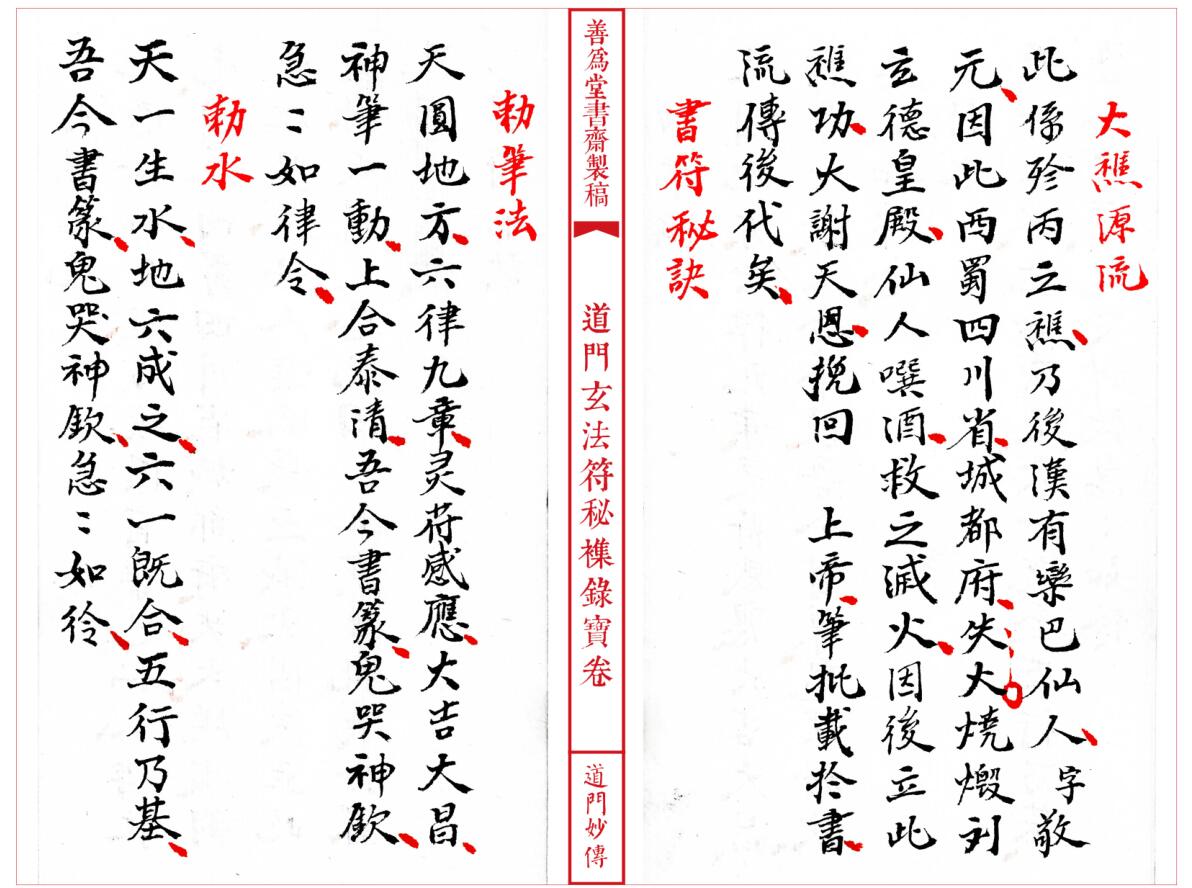 大醮源流
此係殄丙之醮乃後漢有欒巴仙人字敬
元因此西蜀四川省城都府失大燒燬刘
玄德皇殿仙人噀酒救之滅火因後立此
醮功火謝天恩挽回 上帝筆批載於書
流傳後代矣
書符秘訣
善為堂書齋製稿
道門玄法符秘襍錄寶卷
道門妙傳
勅筆法
天圓地方六律九章灵苻感應大吉大昌
神筆一動上合泰清吾今書篆鬼哭神欽
急〻如律令
勅水
天一生水地六成之六一既合五行乃基
吾今書篆鬼哭神欽急〻如彾